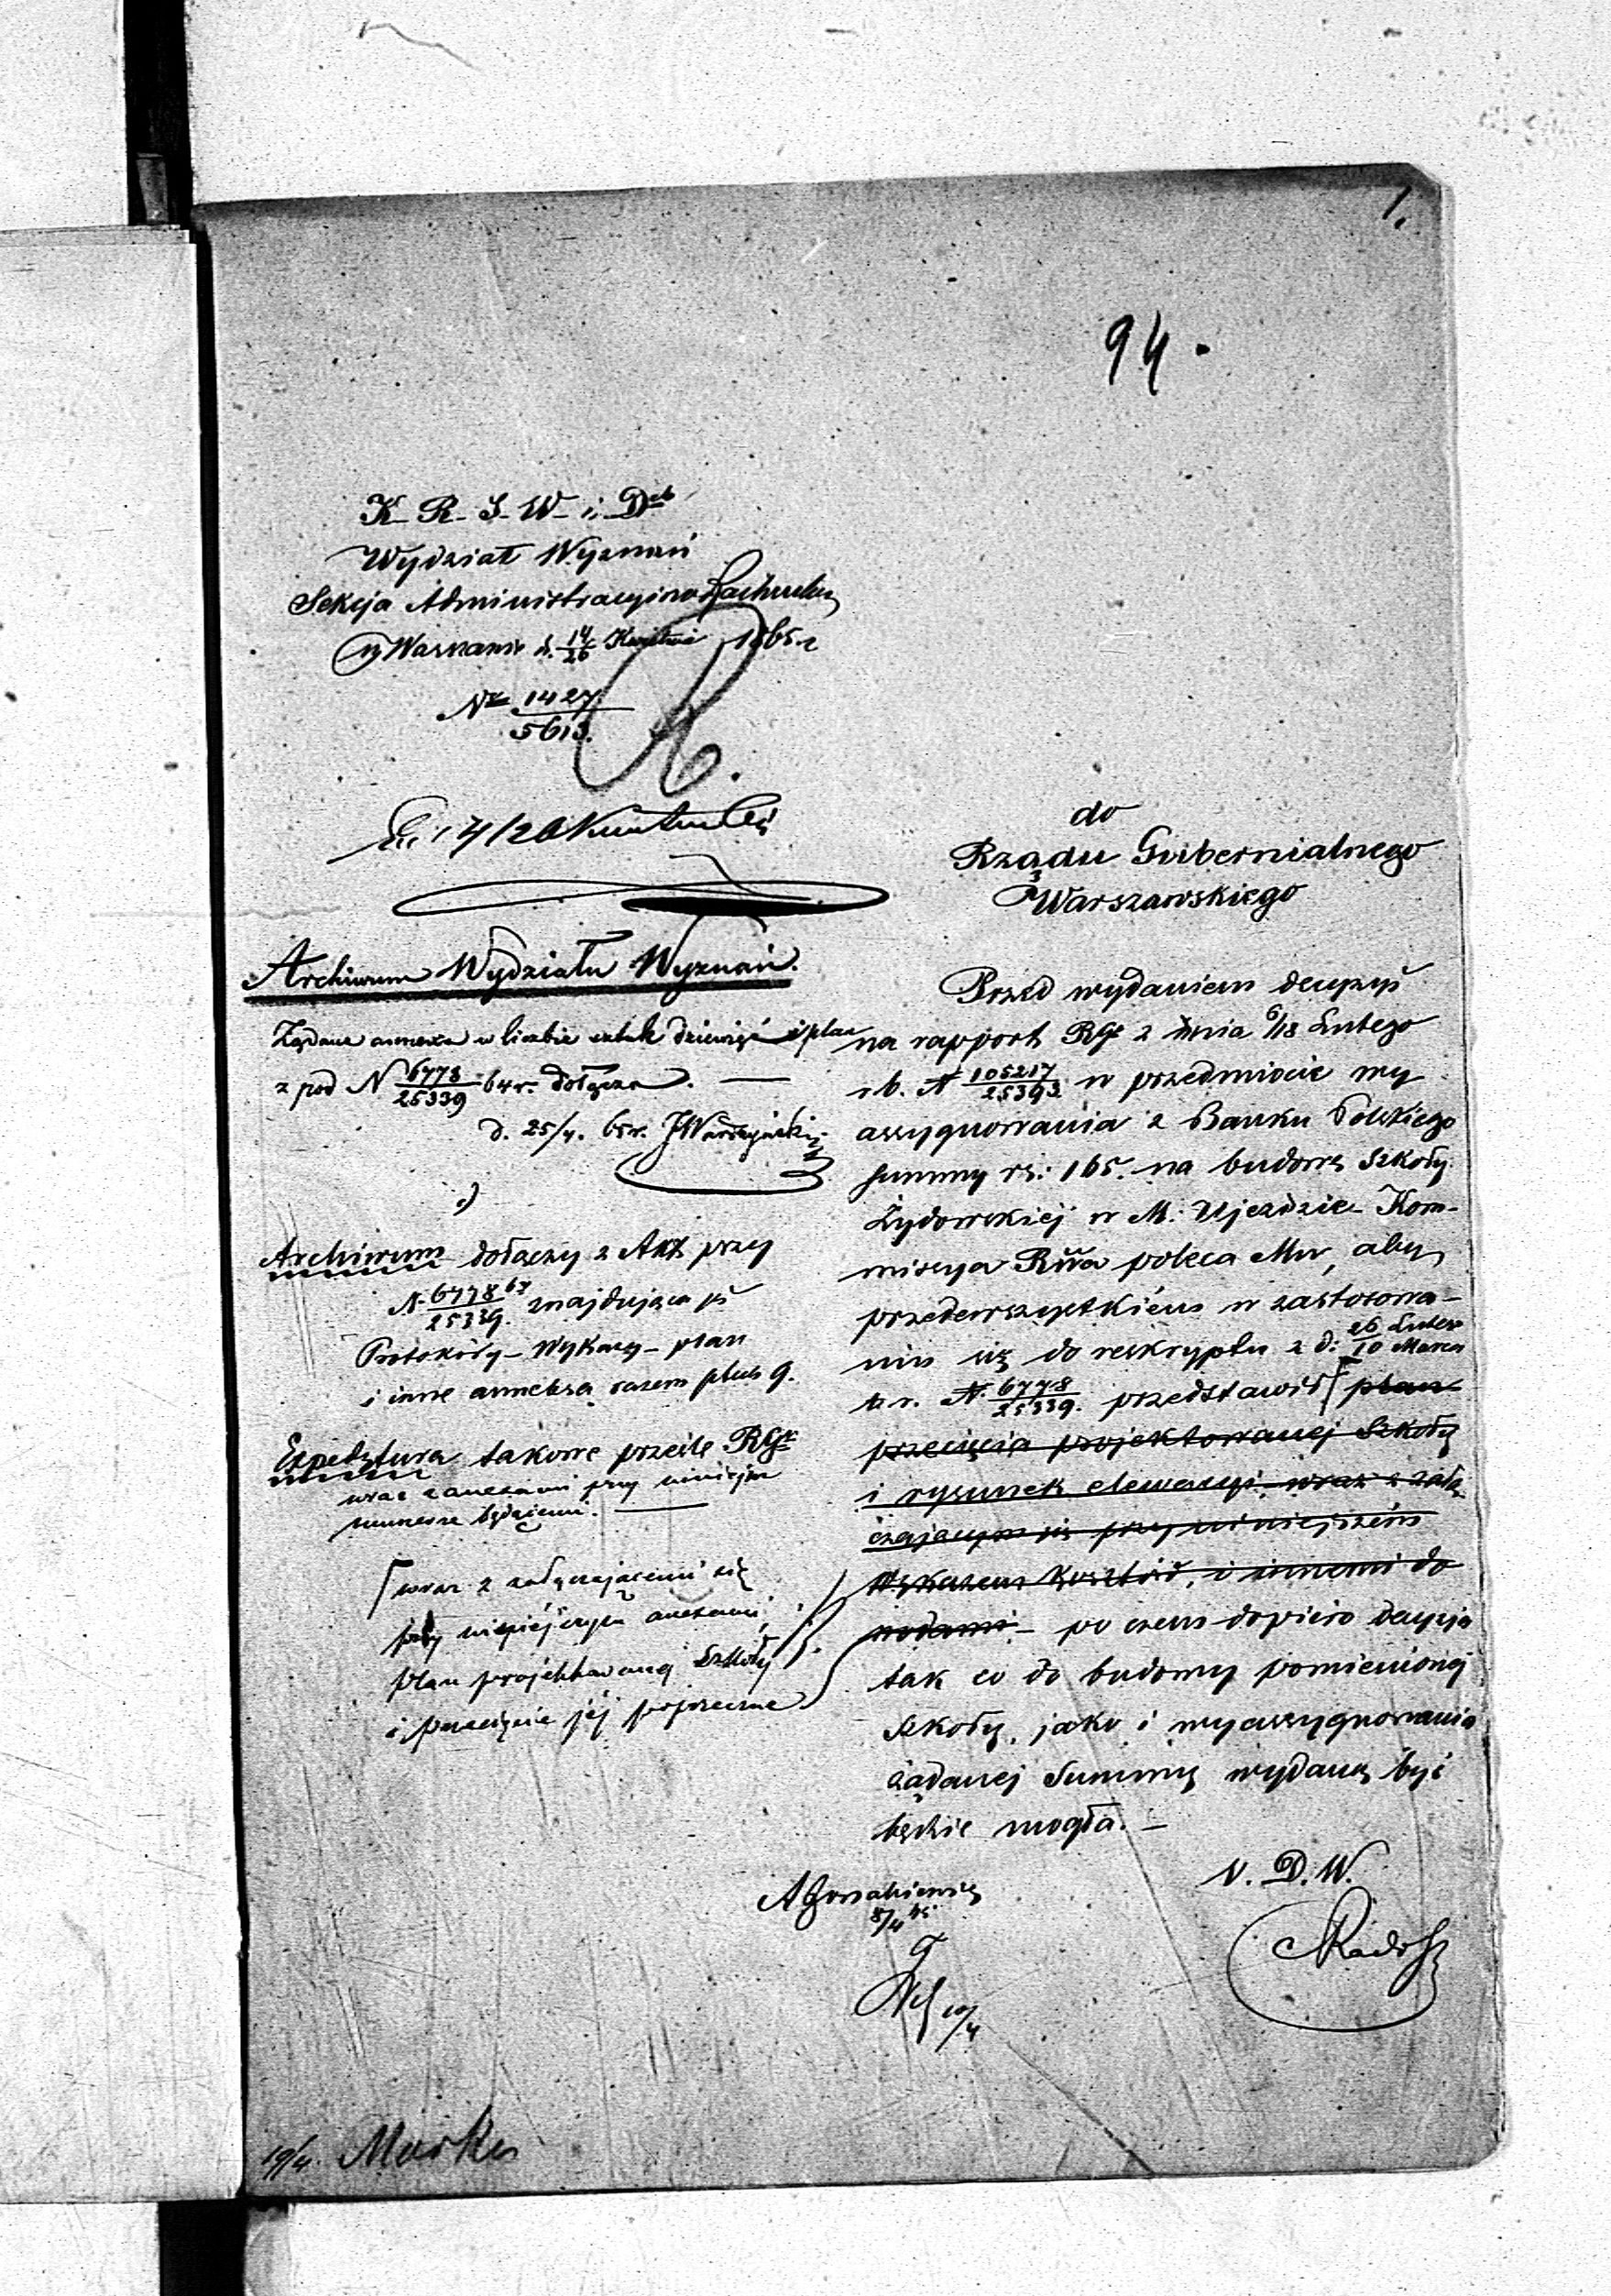 1.
94.
K. R. S. W. i D.
Wydział Wyznań
Sekcja Administracyjno
w Warszawie d. 14/26 Kwietnia 1865 r
Nr 1427/5613.
do
Rządu Gubernialnego
Warszawskiego
Archiwum Wydziału Wyznań.
Żądane annexa w liczbie sztuk dziewięć i plan
z pod N 6778/25339 64 r. dołącza. —
d. 25/4. 65 r.
Archiwum dołączy z Akt przy
N. 6778/25339. znajdujące się
Protokóły – Wykazy – plan
i inne annexa razem sztuk 9.
Expedytura takowe prześle RGu
wraz z anexami przy niniejszem
numerze będącemi. —
wraz z załączającemi się
przy niniejszym anexami,
plan projektowanej Szkoły
i przecięcie jej poprzeczne
Przed wydaniem decyzyi
na rapport RGo z dnia 6/18 Lutego
r b. N 105217/25393 w przedmiocie wy
assygnowania z Banku Polskiego
summy rs: 165. na budowę Szkoły
Żydowskiej w M. Ujeździe Kom-
missya Rwa poleca Mu, aby
przedewszystkiém w zastosowa-
niu się do reskryptu z d: 26 Lutego/10 Marca
t. r. N. 6778/25339. przedstawił plan
przecięcia projektowanej Szkoły
i rysunek elewacyi, wraz z załą
czającym się przy niniejszém
wykazem kosztów, i innemi do
wodami – po czem dopiero decyzja
tak co do budowy pomienionej
Szkoły, jako i wyassygnowania
żądanej Summy wydaną być
będzie mogła. —
V. D. W.
8/4 65
10/4
19/4.